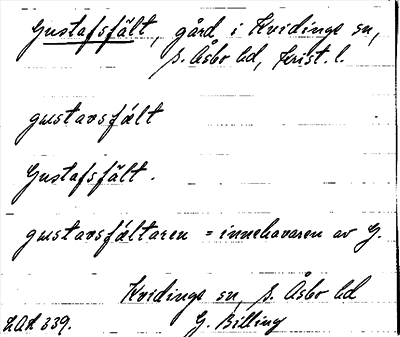 Gustafsfält, gård i Kvidinge sn,
S. Åsbo hd, Krist. l.
gustavsfält
Gustafsfält.
gustavsfältaren = innehavaren av G.
Kvidinge sn, S. Åsbo hd
G. Billing
LAL 339.